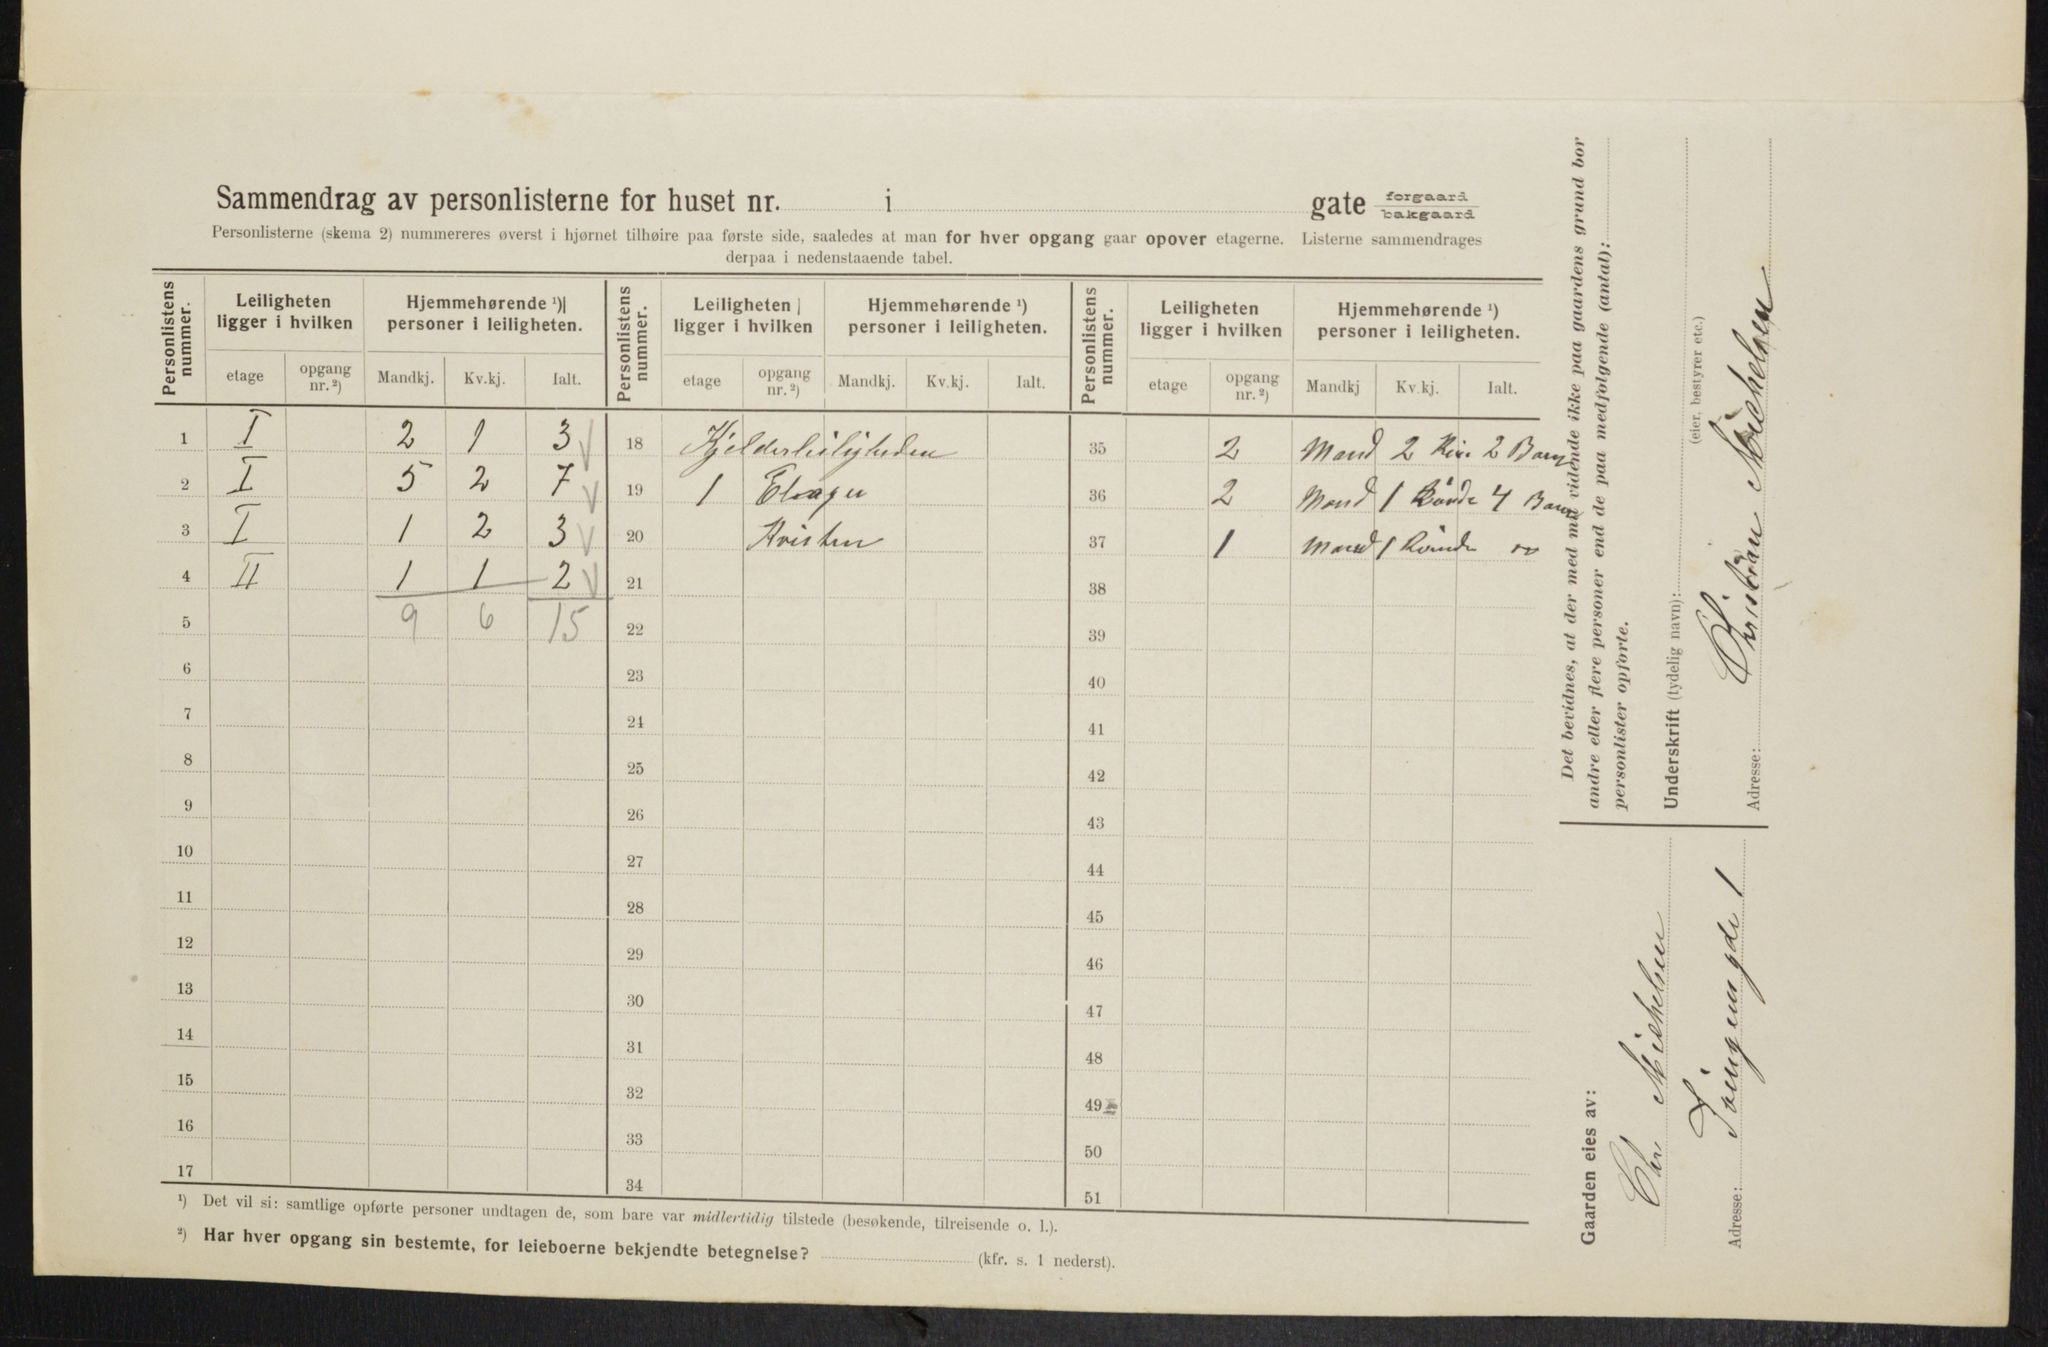 Sammendrag av personlisterne for huset nr. i gate forgaard bakgaard
Personlisterne (skema 2) nummereres øverst i hjørnet tilhøire paa første side, saaledes at man for hver opgang gaar opover etagerne. Listerne sammendrages
derpaa i nedenstaaende tabel.
Personlistens nummer. Leiligheten ligger i hvilken Hjemmehørende ¹) personer i leiligheten. Personlistens nummer. Leiligheten ligger i hvilken Hjemmehørende ¹) personer i leiligheten. Personlistens nummer. Leiligheten ligger i hvilken Hjemmehørende ¹) personer i leiligheten.
etage opgang nr. ²) Mandkj. Kv.kj. Ialt. etage opgang nr. ²) Mandkj. Kv.kj. Ialt. etage opgang nr. ²) Mandkj Kv.kj. Ialt.
1 I 2 1 3 18 Kjelderleiligheden 35 2 Mand 2 2 Barn
2 I 5 2 7 19 1 Etager 36 2 Mand 1 Kvinde 4 Barn
3 I 1 2 3 20 Kvisten 37 1 Mand 1 Kvinde
4 II 1 1 2 21 38
5 9 6 15 22 39
6 23 40
7 24 41
8 25 42
9 26 43
10 27 44
11 28 45
12 29 46
13 30 47
14 31 48
15 32 49
16 33 50
17 34 51
¹) Det vil si: samtlige opførte personer undtagen de, som bare var midlertidig tilstede (besøkende, tilreisende o. l.).
²) Har hver opgang sin bestemte, for leieboerne bekjendte betegnelse? (kfr. s. 1 nederst).
Det bevidnes, at der med mit vidende ikke paa gaardens grund bor
andre eller flere personer end de paa medfølgende (antal):
personlister opførte.
Underskrift (tydelig navn):
(eier, bestyrer etc.)
Christian Michelsen
Adresse:
Gaarden eies av:
Chr Michelsen
Adresse: 1